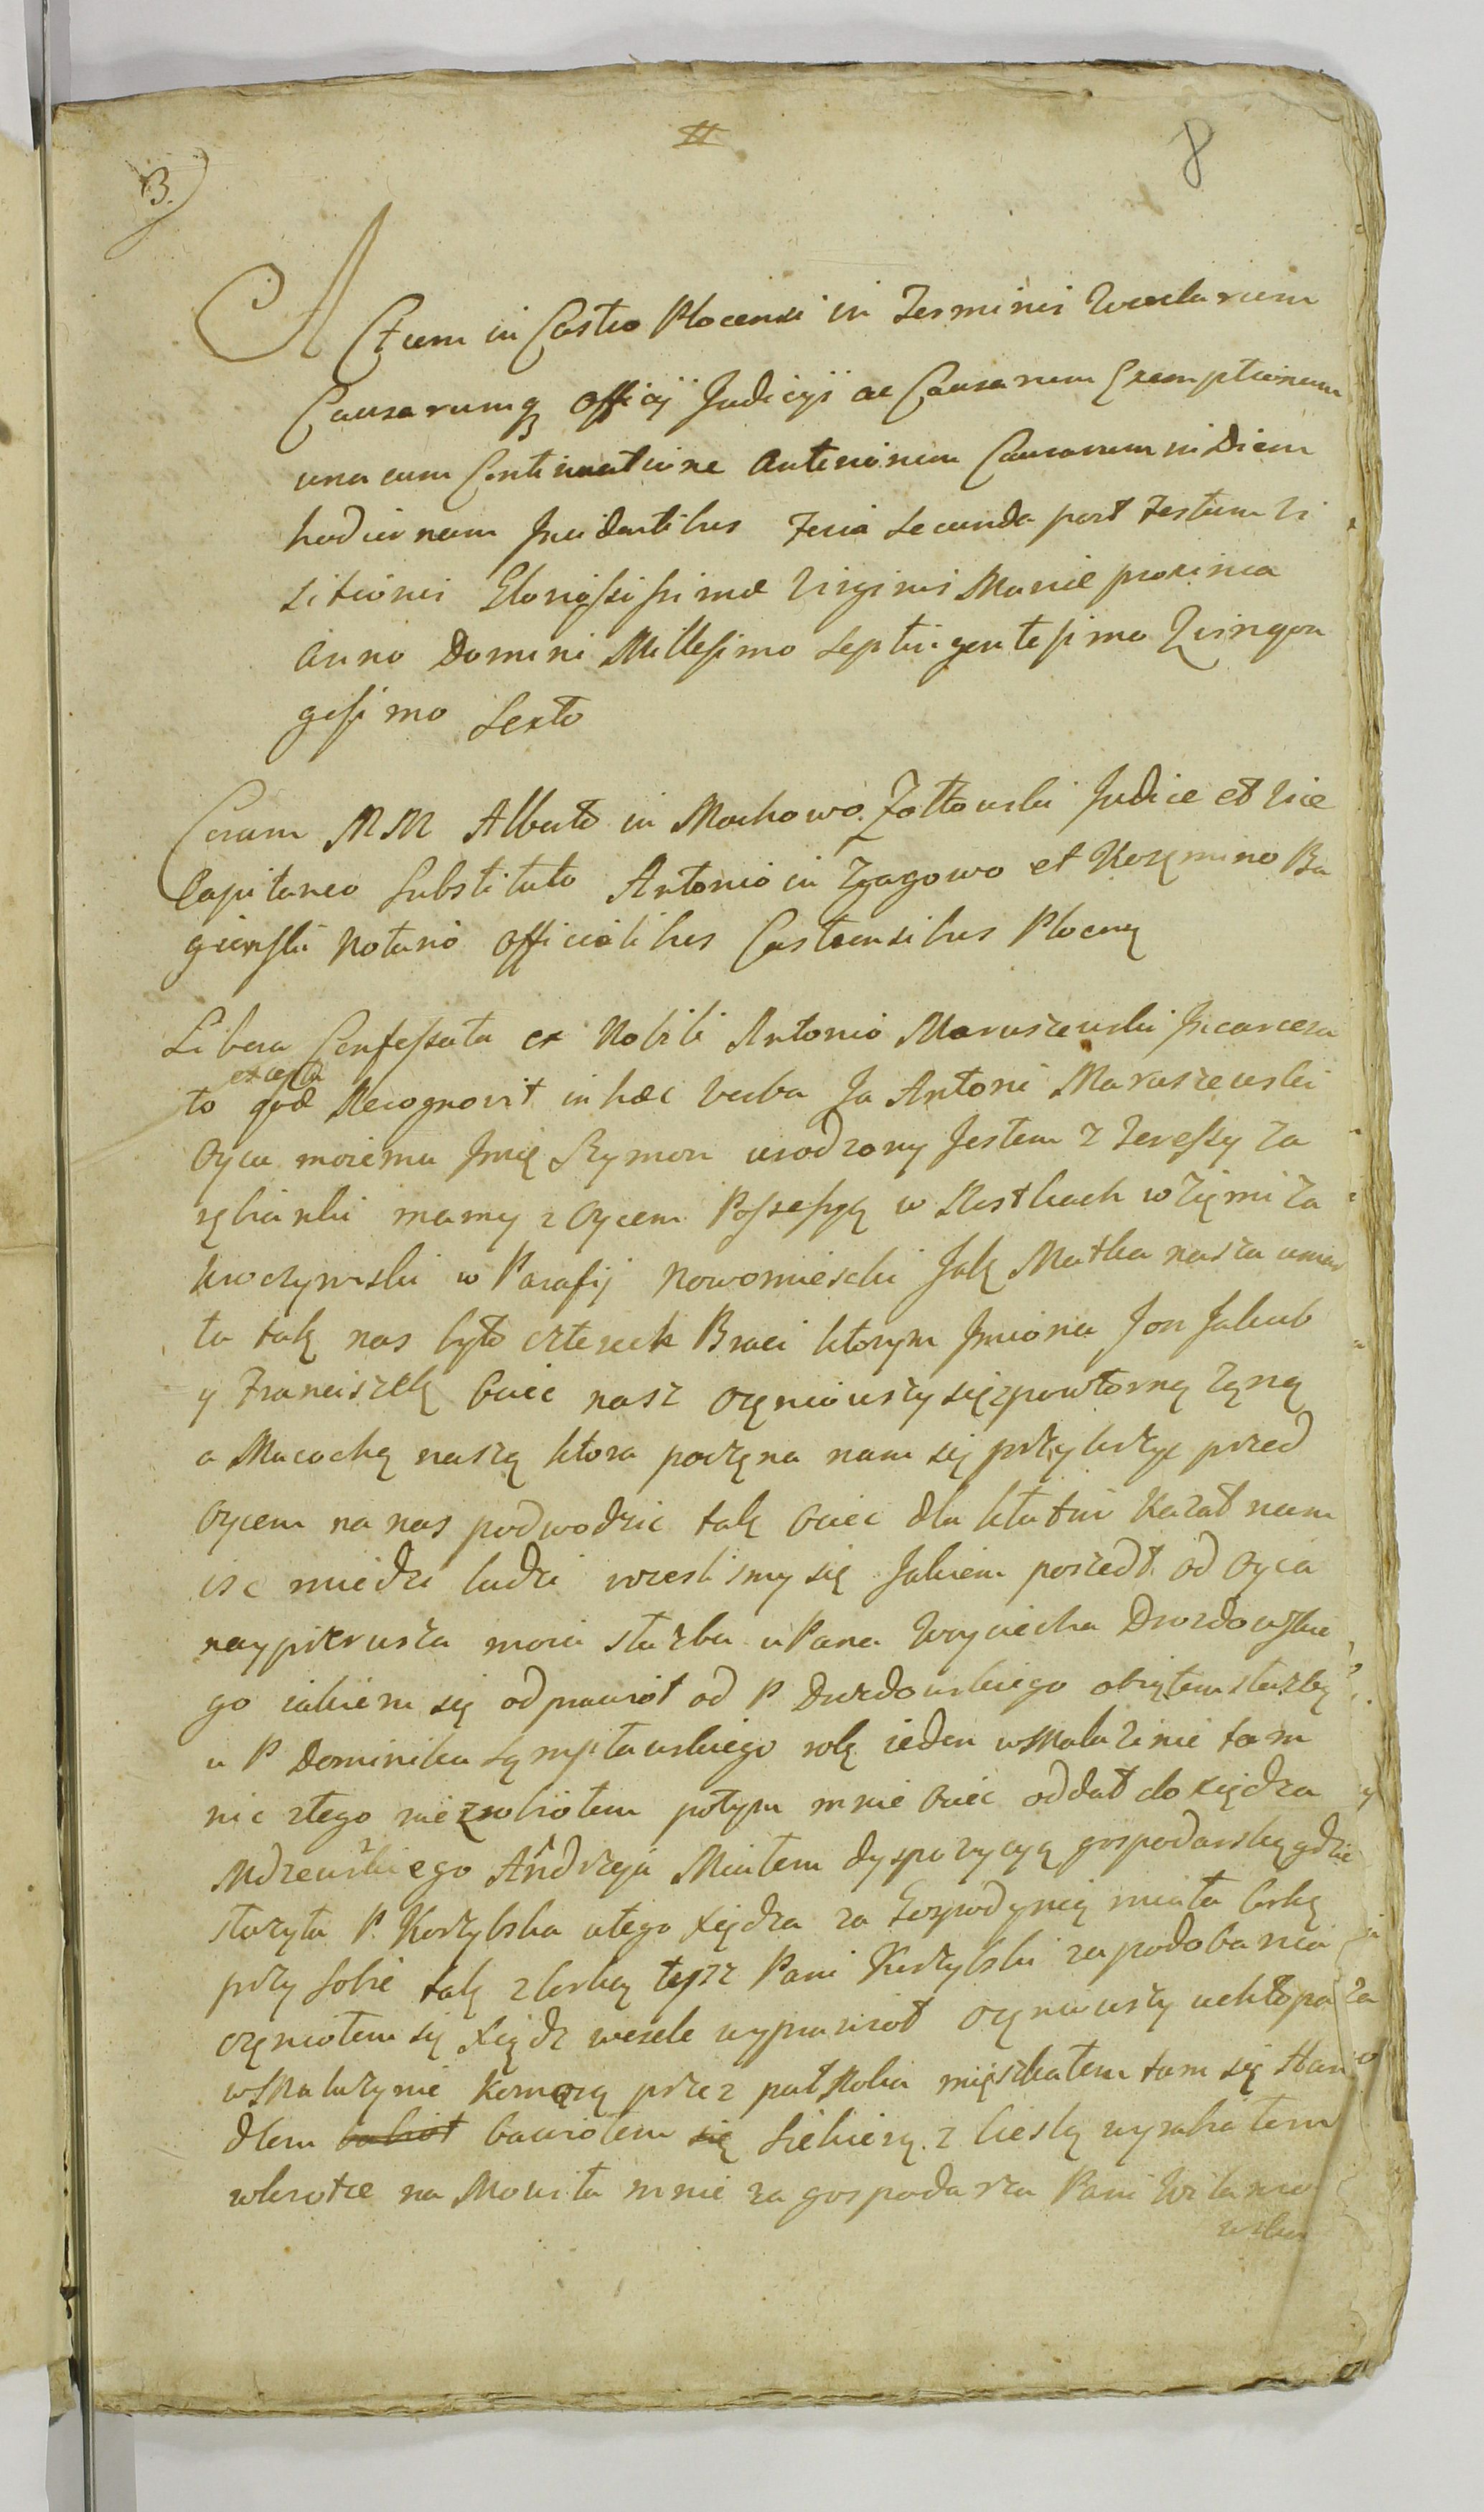 II
8
3.
Actum in Castro Plocensi in Terminis Querelarum
Causarumq Officij Judicij ac Causarum Exemptionum
una cum Continuatione Anteriorum Causarum in Diem
hodiernam Incidentibus Feria Secunda post Festum Vi
sitationis Gloriosissimæ Virginis Mariæ proxima
Anno Domini Millesimo Septingentesimo Quinqua
gesimo Sexto
Coram MM Alberto in Mochowo Zołtowski Judice et Vice
Capitaneo Substituto Antonio in Zgagowo et Kozmino Ba
gieński Notario Officialibus Castrensibus Plocen
Libera Confessata ex Nobili Antonio Maruszewski Incarcera
excepta
to quæ Recognovit in hæc verba Ja Antoni Maruszewski
Oycu moiemu Imię Szymon urodzony Jestem z Teressy Za
rębianki mamy z Oycem Possessyą w Kostkach w Zięmi Za
kroczymski w Parafij Nowomieski Jak Matka nasza umar
ła tak nas było czterech Braci ktorym Imiona Jon Jakub
y Franciszek Ociec nasz ozęniowszy się z powtorną zęną
a Macochą naszą ktora poczęna nam się przykrzyc przed
Oycem na nas podwodzic tak Ociec dla kłutni Kazał nam
isc miedzi ludzi rozeslismy się Jakiem poszedł od Oyca
naypierwsza moia służba u Pana Woyciecha Drozdowskie
go iakiem się odprawiot od P Drozdowskiego obiąłem służbę
u P Dominika Sęmpławskiego rok ieden w Maluzinie tam
nic złego niezrobiołem potym mnie Ociec oddał do xiędza
Mdzewskiego Andrzeja Miałem dyspozycyą gospodarską gdzie
służyła P. Korzybska u tego xiędza za Gospodynią miała Corkę
przy sobie tak z Corką teysz Pani Korzybski za podobania
ozęniołem się Xiądz wesele wyprawiot ozęniwszy u chłopa za
w Maluzynie Komorą przez puł Roka mięszkałem tam się Han
dlem bawiołem Siekierą z Cieslą wyrabiałem
wkrotce na Mowiła mnie za gospodarza Pani Wilamo
wska